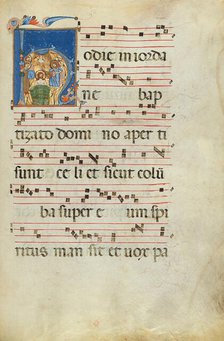 Hodie in iorda
ne bap
tizato domi no aper ti
sunt ce li et sicut colū
ba super e um spi
ritus man sit et uox pa